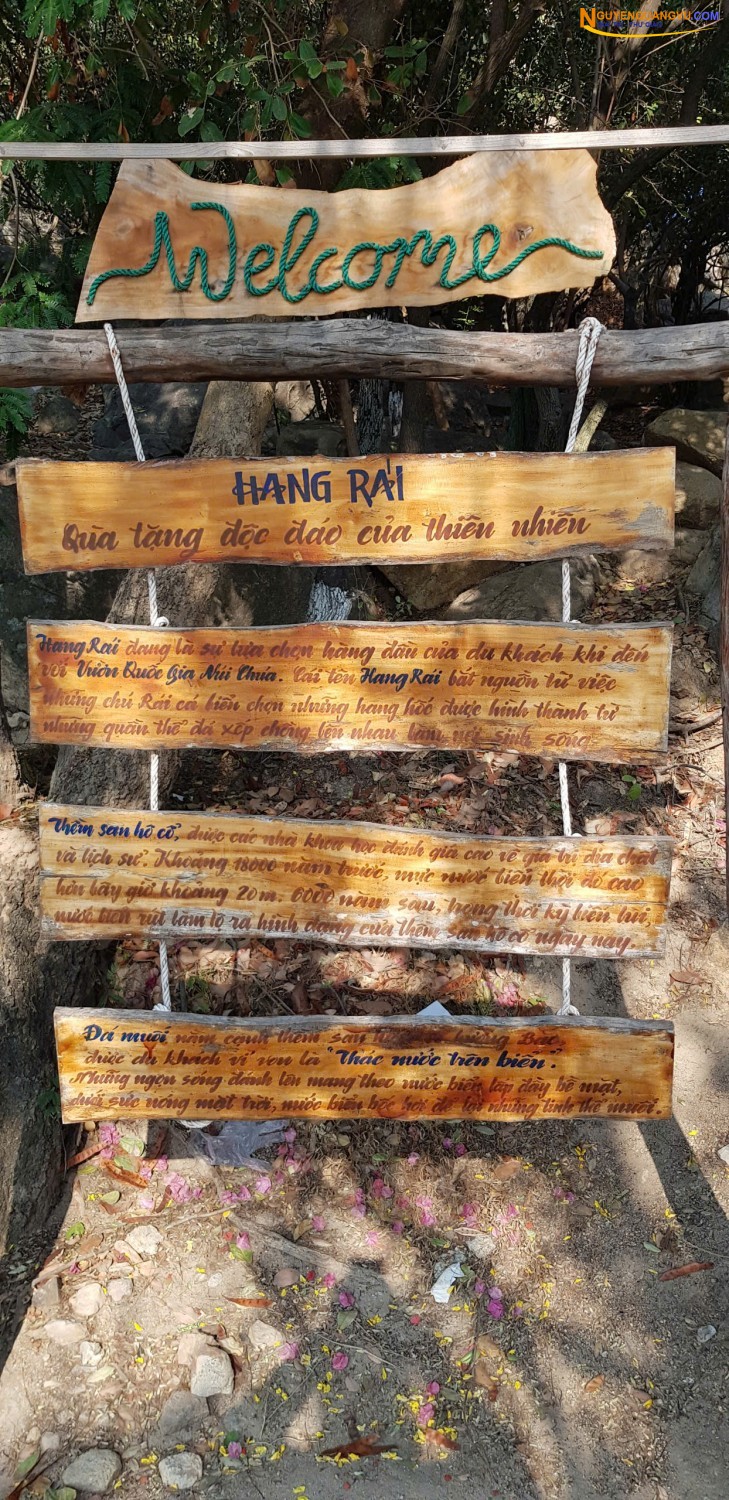 NGUYENQUANGVU.COM
Welcome
HANG RÁI
Qùa tặng độc đáo của thiên nhiên
Hang Rái đang là sự lựa chọn hàng đầu của du khách khi đến
với Vườn Quốc Gia Núi Chúa. Cái tên Hang Rái bắt nguồn từ việc
những chú Rái cá biển chọn những hang hốc được hình thành từ
những quần thể đá xếp chồng lên nhau làm nơi sinh sống
Thềm san hô cổ, được các nhà khoa học đánh giá cao về giá trị địa chất
và lịch sử. Khoảng 18000 năm trước, mực nước biển thời đó cao
hơn bây giờ khoảng 20m. 6000 năm sau, trong thời kỳ biển lùi,
nước biển rút làm lộ ra hình dạng của thềm san hô cổ ngày nay.
Đá muối nằm cạnh thềm san Bắc,
được du khách ví von là "Thác nước trên biển".
Những ngọn sóng đánh lên mang theo nước biển lấp đầy bề mặt,
dưới sức nóng mặt trời, nước biển bốc hơi để lại những tinh thể muối.